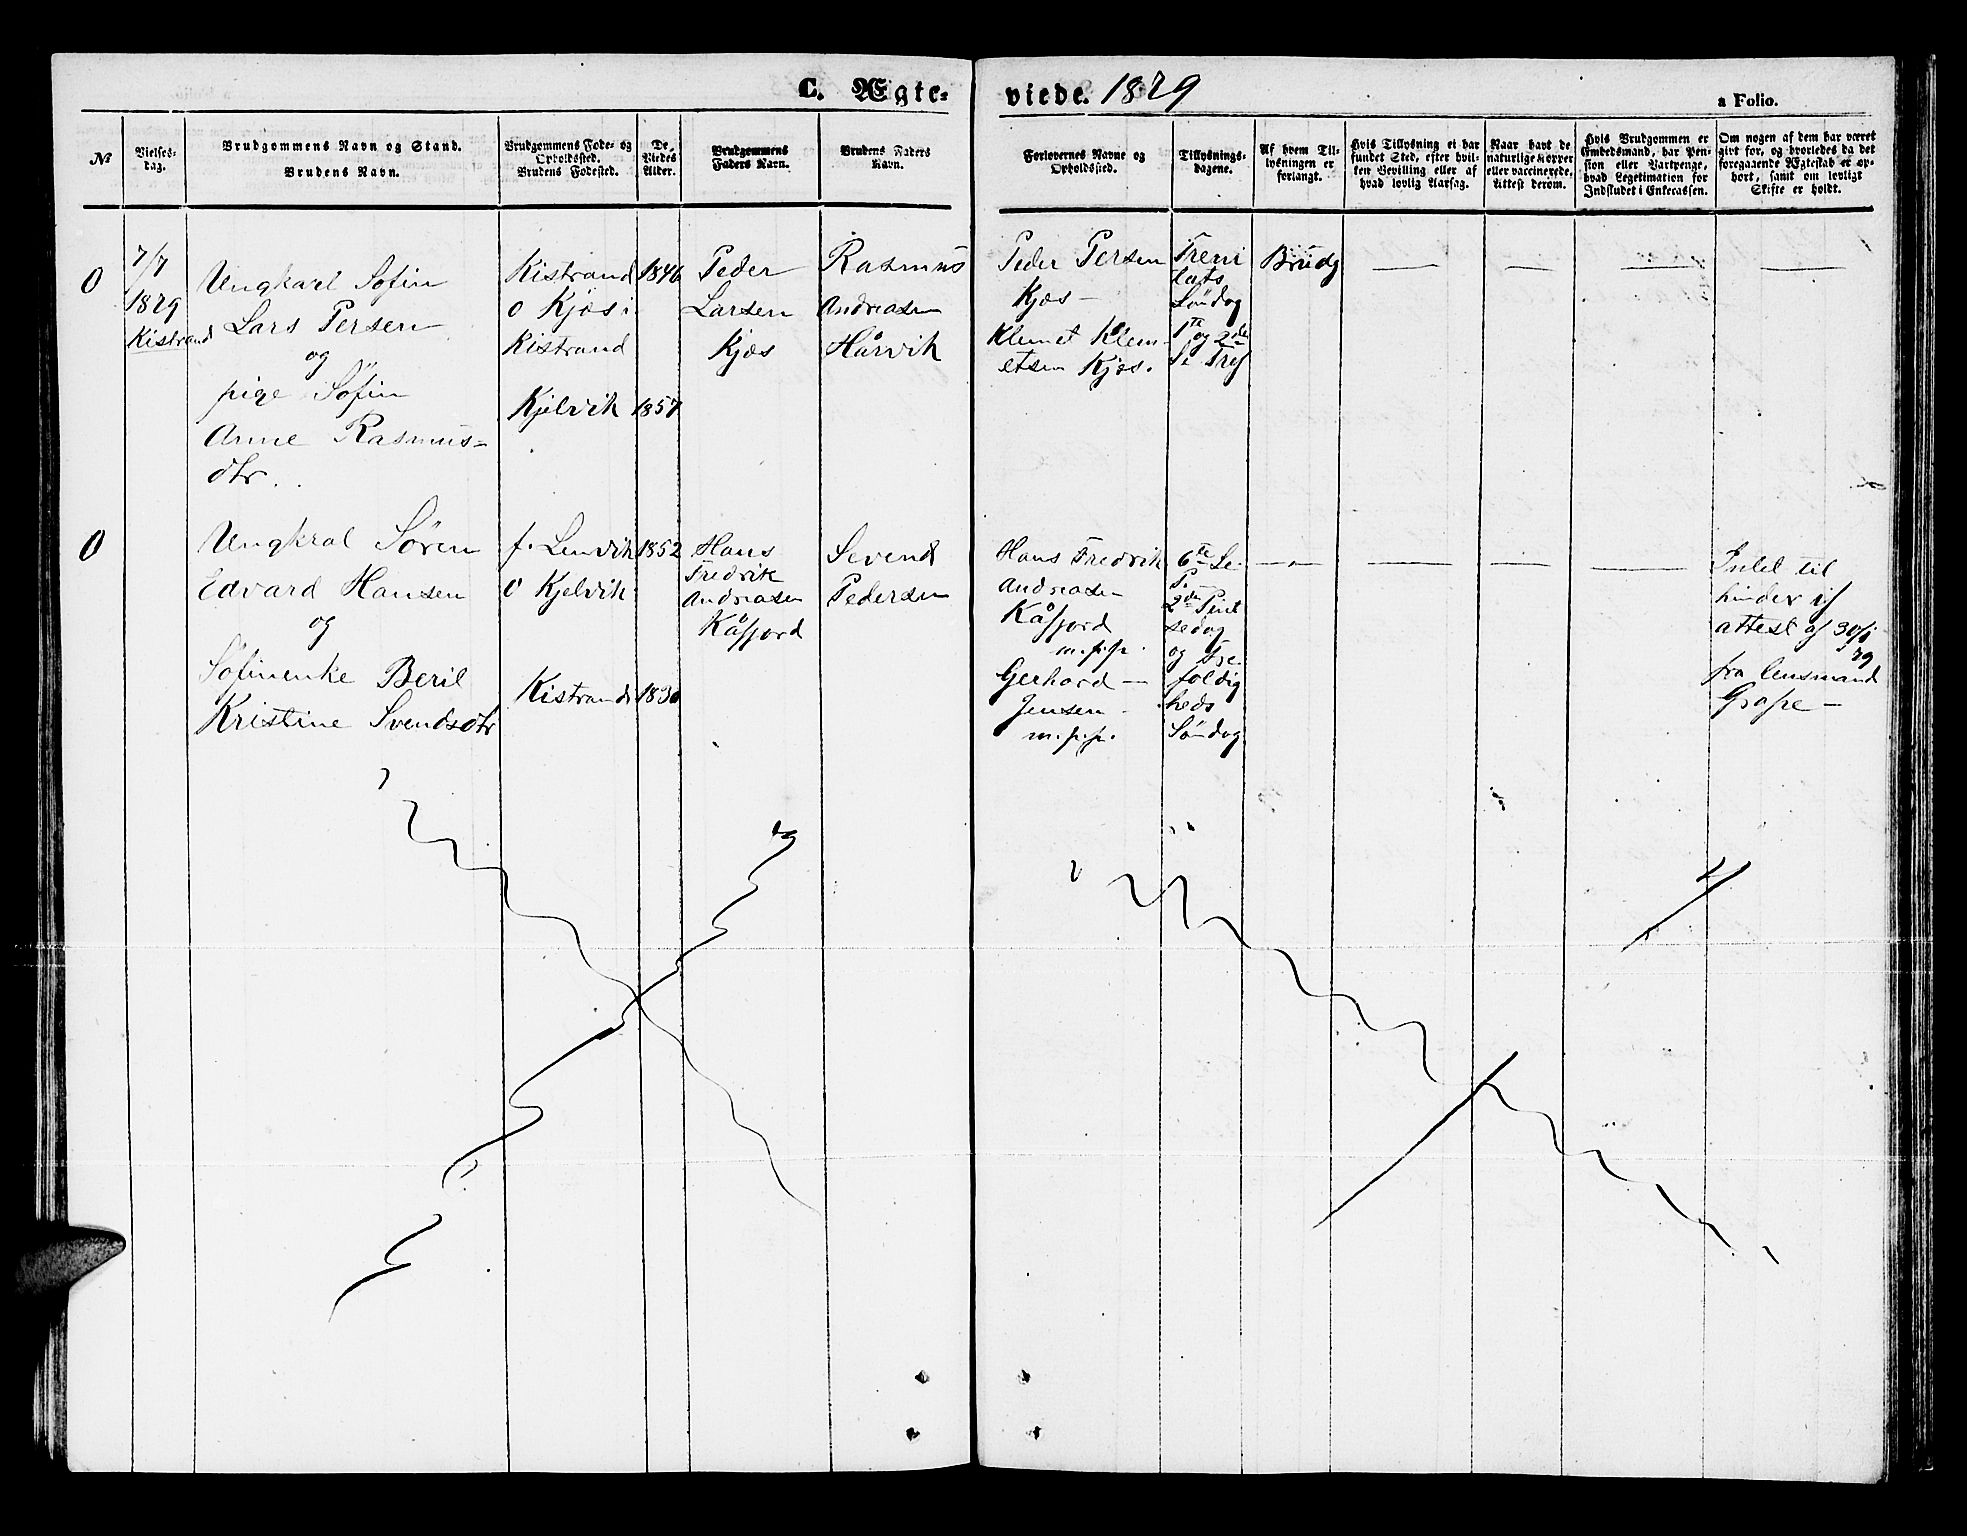 C. Ægte-
viede. 1879
a Folio.
№
Vielses-
dag.
Brudgommens Navn og Stand.
Brudens Navn.
Brudgommens Føde- og
Opholdssted.
Brudens Fødested.
De
Viedes
Alder.
Brudgommens
Faders Navn.
Brudens Faders
Navn.
Forlovernes Navne og
Opholdssted.
Tillysnings-
dagene.
Af hvem Til-
lysningen er
forlangt.
Hvis Tillysning ei har
fundet Sted, efter hvil-
ken Bevilling eller af
hvad lovlig Aarsag.
Naar havt de
naturlige Kopper
eller vaccinerede,
Attest derom.
Hvis Brudgommen er
Embedsmand, har Pen-
sion eller Vartpenge,
hvad Legetimation for
Indskudet i Enkecassen.
Om nogen af dem har været
givt før, og hvorledes da det
foregaaende Ægteskab er op-
hørt, samt om lovligt
Skifte er holdt.
0
7/7
1879
Kistrand
Ungkarl Søfin
Lars Persen
og
pige Søfin
Anne Rasmus-
dtr.
Kistrand
o Kjøs i
Kistrand
Kjelvik
1846
1857
Peder
Larsen
Kjøs
Rasmus
Andreasen
Hårvik
Peder Persen
Kjøs -
Klemet Klem-
etsen Kjøs.
Treni
tats
Søndag
1te og 2de
S. Tref
Brudg
0
Ungkral Søren
Edvard Hansen
og
Søfinenke Beril
Kristine Svendsdtr
f. Lenvik
o Kjelvik
Kistrand
1852
1830
Hans
Fredrik
Andreasen
Kåfjord
Sevend
Pedersen
Hans Fredrik
Andreasen
Kåfjord
m.p.p.
Gerhard -
Jensen -
m.p.p.
6te Se.
P.
2den Pint
sedag
og Tre-
foldig
heds
Søndag
Intet til
hinder if
attest af 30/1
79
fra lensmand
Grape -